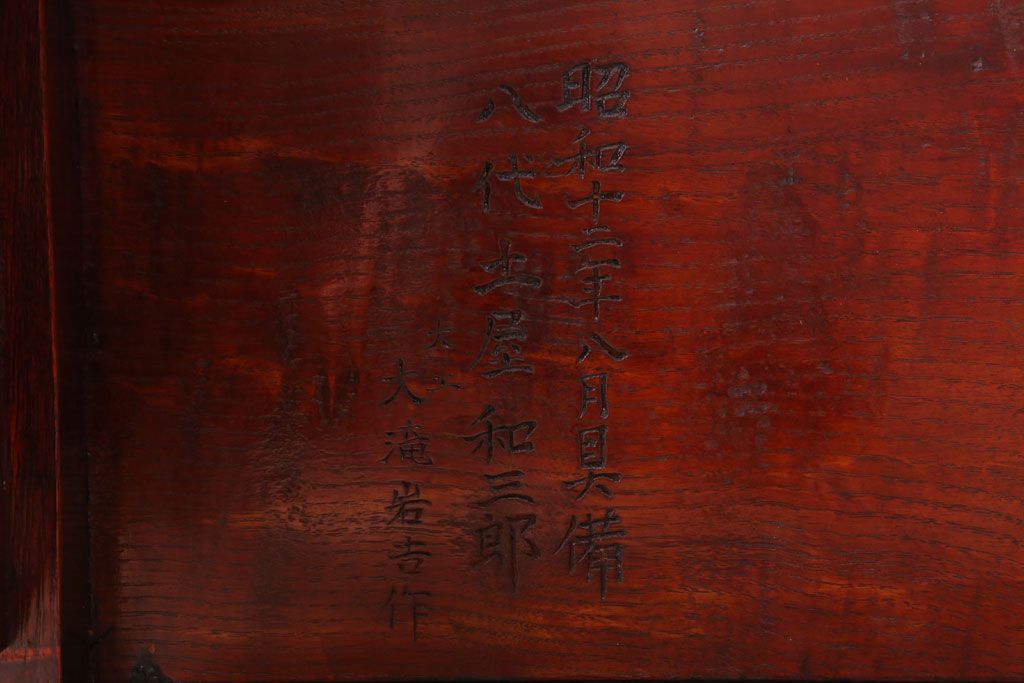 昭和十二年八月具備
八代 土屋和三郎
大工
大滝岩吉作